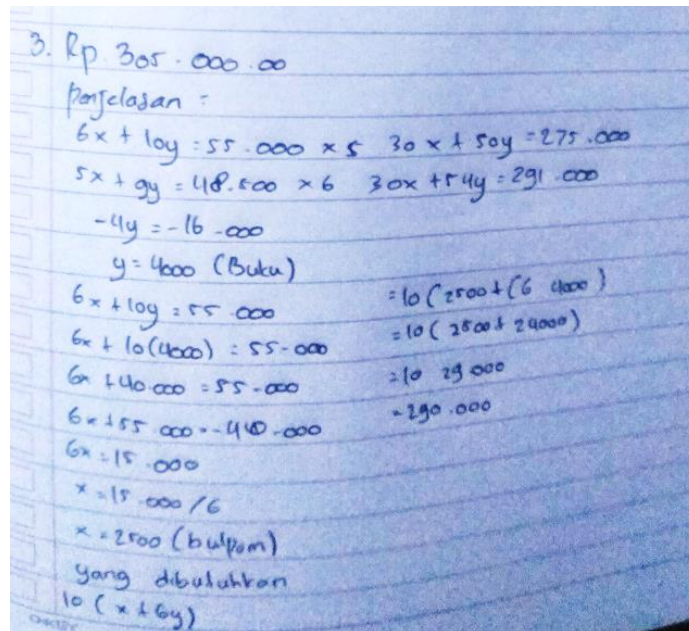 3. Rp. 305.000.00
Penjelasan :
6x + 10y = 55.000 x 5 30x + 50y = 275.000
5x + 9y = 48.500 x 6 30x + 54y = 291.000
-4y = -16.000
y = 4000 (Buku)
6x + 10y = 55.000
6x + 10(4000) = 55.000
6x + 40.000 = 55.000
6x + 55.000 = -40.000
6x = 15.000
x = 15.000/6
x = 2500 (bulpom)
yang dibutuhkan
10 (x + 6y)
= 10 (2500 + (6 4000)
= 10 (2500 + 24000)
= 10 29 000
= 290.000